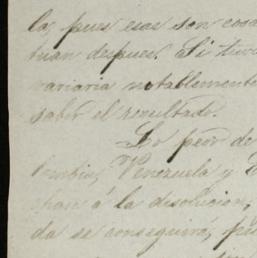 la, pues esas son cosa
tuan despues. Si tuvi
variaria notablemente
saber el resultado.
Lo peor de
lombia, Venezuela y
chan á la disolucion,
da se conseguirá, pu